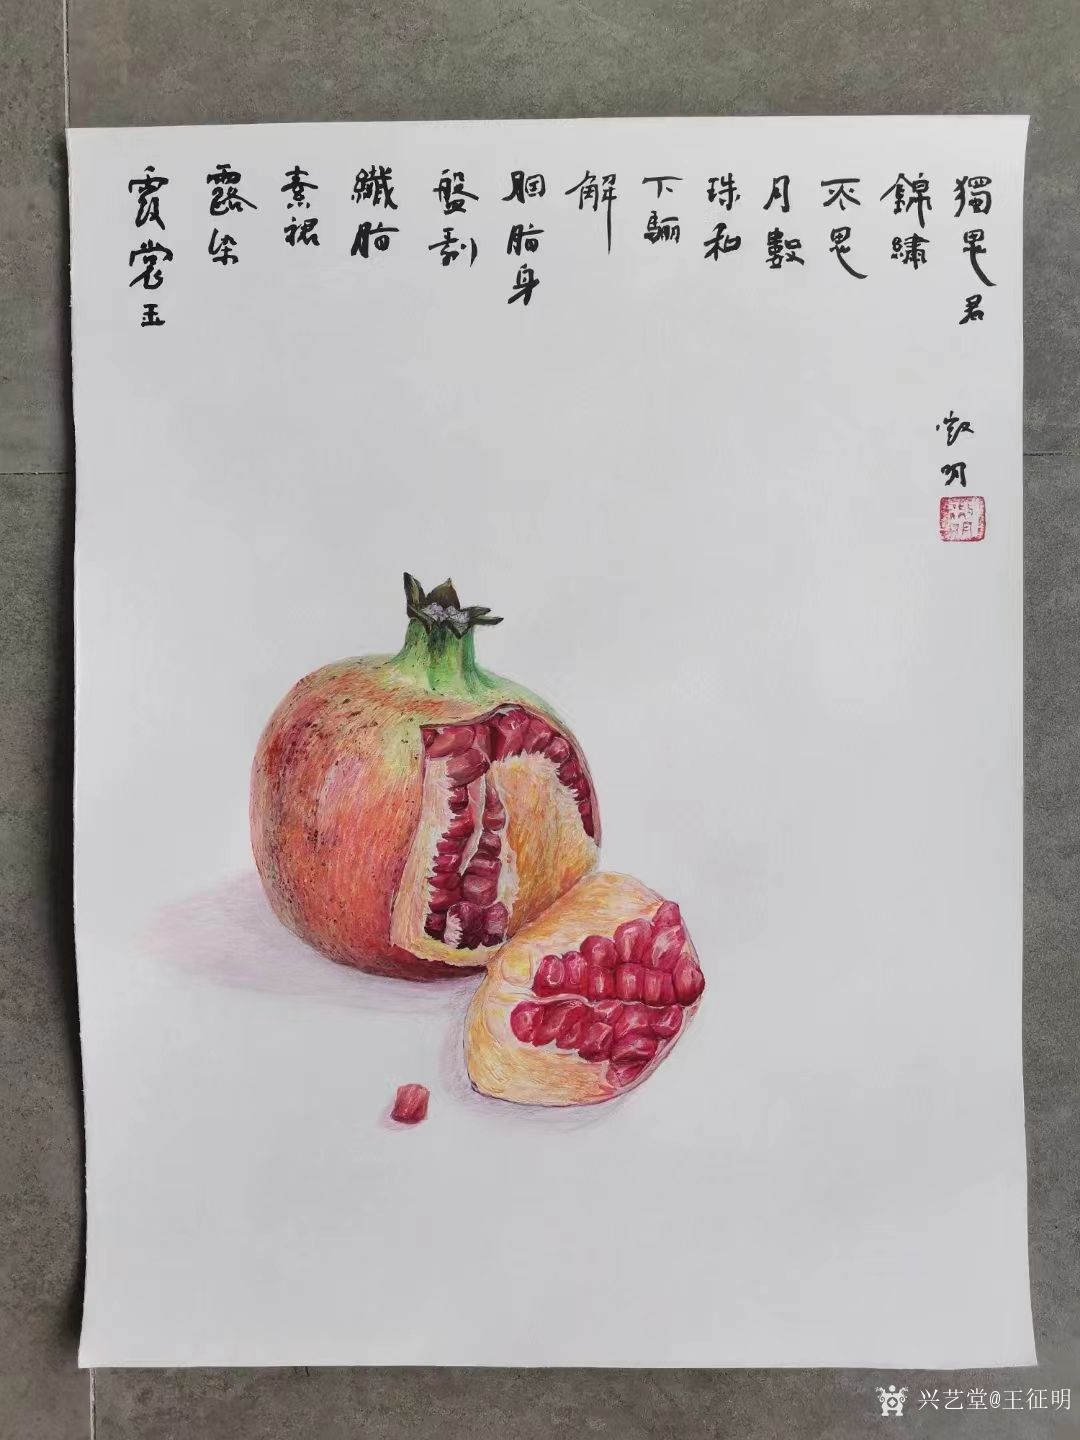 霞裳玉
露染
素裙
纖脂
盤剥
胭脂身
解
下驪
珠和
月數
不思
錦繡
獨思君
徵明
兴艺堂@王征明